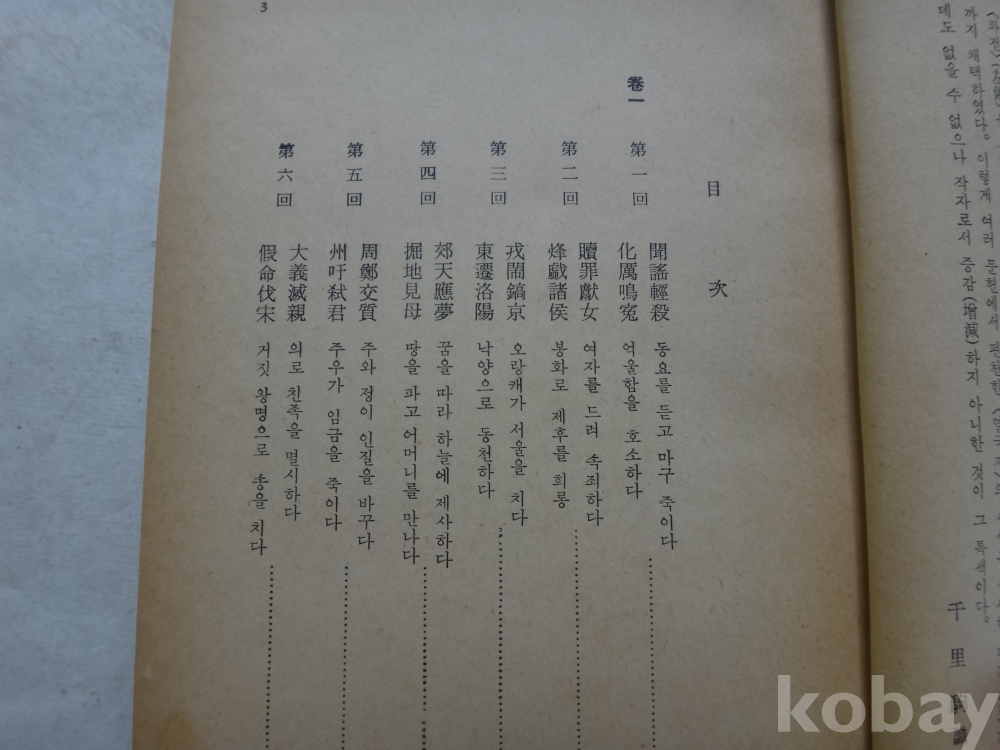 〈좌전〉(左傳)
까지 채택하였다. 이렇게 여러 문헌에서 편찬한 〈열국지〉의
데도 없을 수 없으나 작자로서 증감(增減)하지 아니한 것이 그 특색이다.
千里
目次
卷一
第一回
聞謠輕殺 동요를 듣고 마구 죽이다
化厲鳴寃 억울함을 호소하다
第二回
贖罪獻女 여자를 드려 속죄하다
烽戱諸侯 봉화로 제후를 희롱
第三回
戎鬧鎬京 오랑캐가 서울을 치다
東遷洛陽 낙양으로 동천하다
第四回
郊天應夢 꿈을 따라 하늘에 제사하다
掘地見母 땅을 파고 어머니를 만나다
第五回
周鄭交質 주와 정이 인질을 바꾸다
州吁弑君 주우가 임금을 죽이다
第六回
大義滅親 의로 친족을 멸시하다
假命伐宋 거짓 왕명으로 송을 치다
3
kobay